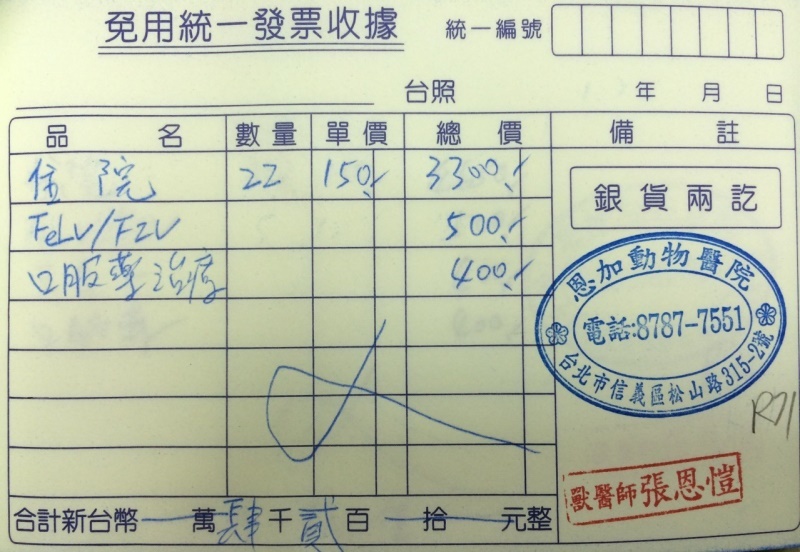 免用統一發票收據
統一編號
台照 年 月 日
品名 數量 單價 總價 備註
住院 22 150.- 3300.-
銀貨兩訖
FeLV/FIV 500.-
口服藥治療 400.-
恩加動物醫院
電話:8787-7551
台北市信義區松山路315-2號
R71
獸醫師張恩愷
合計新台幣 萬肆千貳百 拾 元整